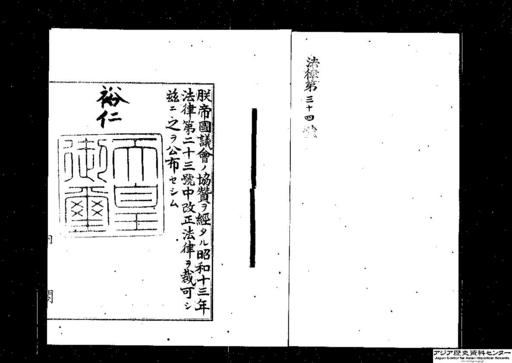 法律第三十四號
朕帝國議會ノ協賛ヲ經タル昭和十三年
法律第二十三號中改正法律ヲ裁可シ
茲ニ之ヲ公布セシム
裕仁
天皇
御璽
内
閣
アジア歴史資料センター
Japan Center for Asian Historical Records